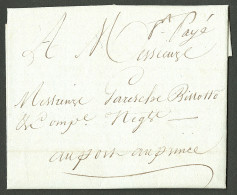 pt Payé
A Messieurs
Messieurs Garesche Billotte
& Compe. Negts
au port au prince